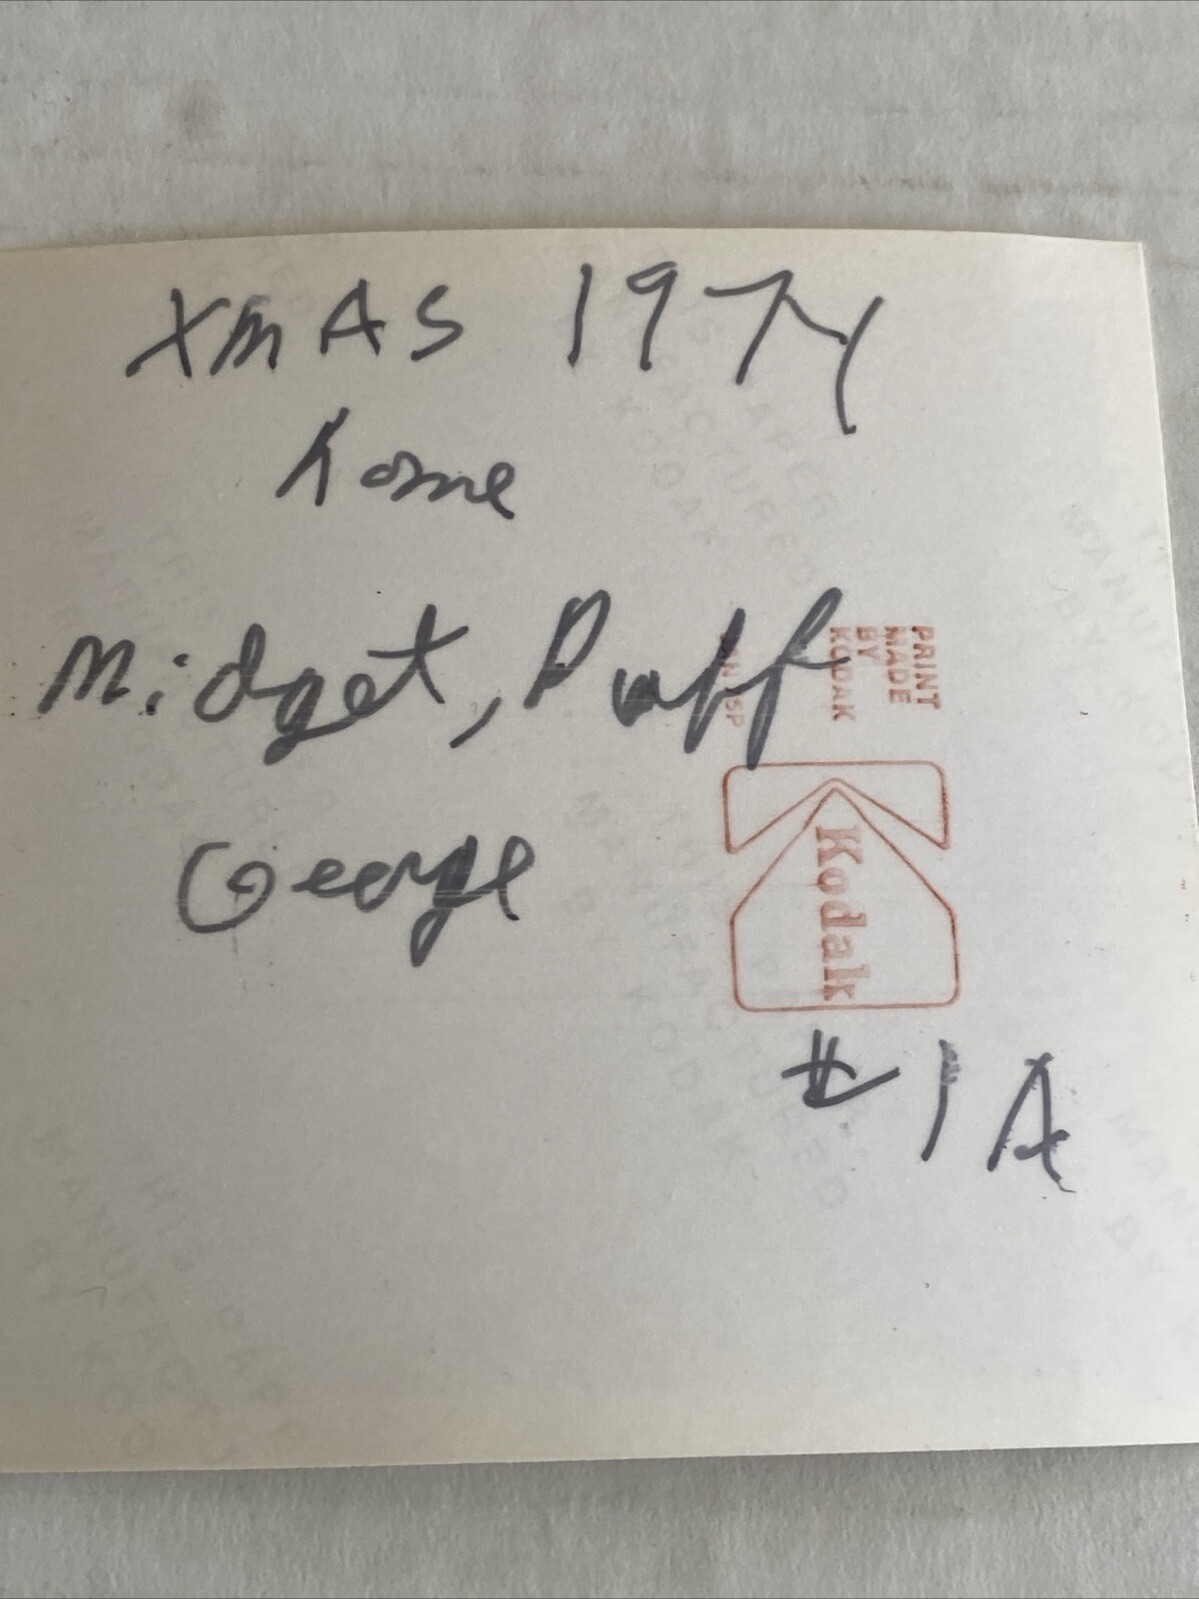 Xmas 1974
home
Midget, Puff
George
PRINT
MADE
BY
KODAK
Kodak
# 1A